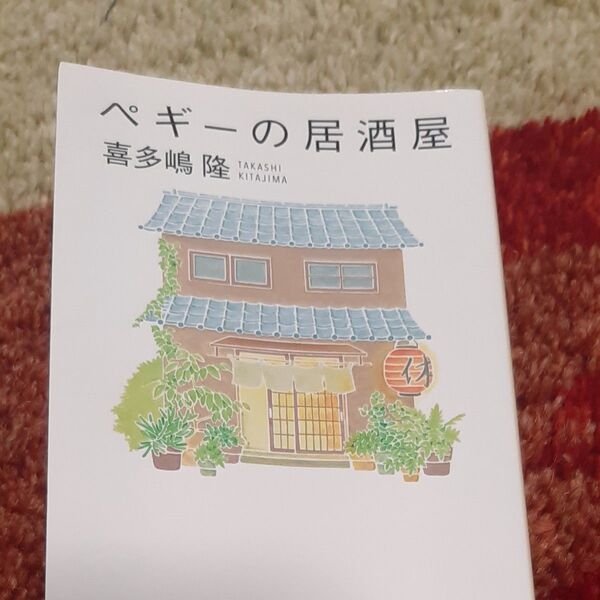 ペギーの居酒屋
喜多嶋 隆
TAKASHI
KITAJIMA
休